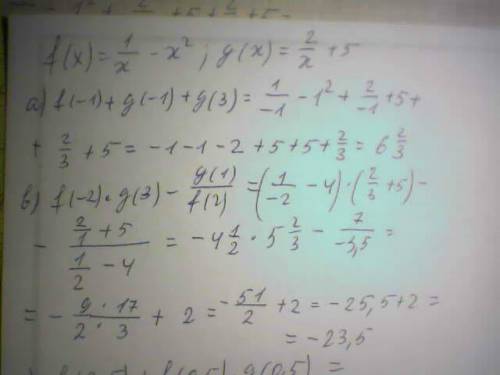 f(x) = 1/x - x²; g(x) = 2/x + 5
а) f(-1) + g(-1) + g(3) = 1/-1 - 1² + 2/-1 + 5 +
+ 2/3 + 5 = -1 - 1 - 2 + 5 + 5 + 2/3 = 6 2/3
в) f(-2) · g(3) - g(1)/f(2) = (1/-2 - 4) · (2/3 + 5) -
- (2/1 + 5)/(1/2 - 4) = -4 1/2 · 5 2/3 - 7/-3,5 =
= - 9 · 17/2 · 3 + 2 = -51/2 + 2 = -25,5 + 2 =
= -23,5